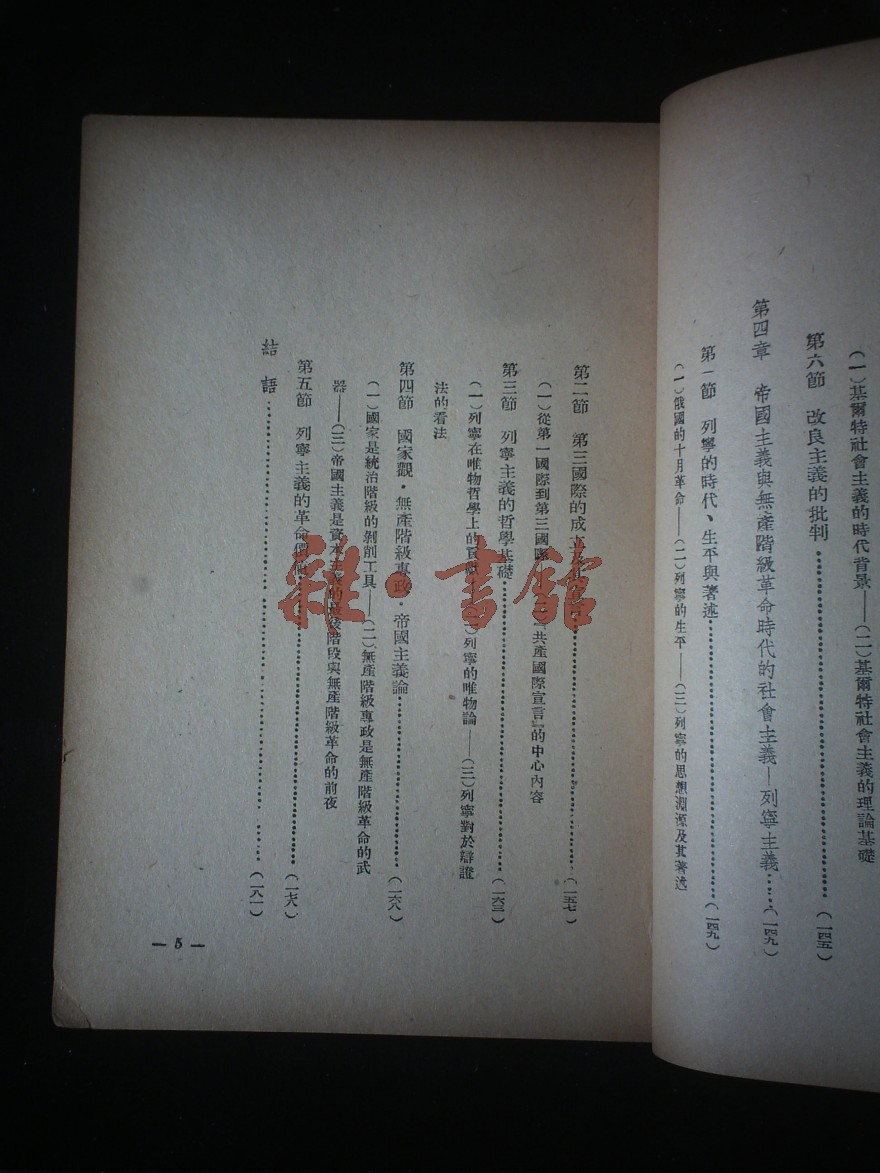 (一)基爾特社會主義的時代背景——(二)基爾特社會主義的理論基礎
第六節 改良主義的批判……(一四五)
第四章 帝國主義與無產階級革命時代的社會主義—列寧主義……(一四九)
第一節 列寧的時代、生平與著述……(一四九)
(一)俄國的十月革命——(二)列寧的生平——(三)列寧的思想淵源及其著述
第二節 第三國際的成立……(一五七)
(一)從第一國際到第三國際 共產國際宣言』的中心內容
第三節 列寧主義的哲學基礎……(一六三)
(一)列寧在唯物哲學上的貢獻 列寧的唯物論——(三)列寧對於辯證
法的看法
第四節 國家觀·無產階級專政·帝國主義論……(一六八)
(一)國家是統治階級的剝削工具——(二)無產階級專政是無產階級革命的武
器——(三)帝國主義是資本主義的最後階段與無產階級革命的前夜
第五節 列寧主義的革命價值……(一七八)
結語……(一八一)
— 5 —
雜·書館